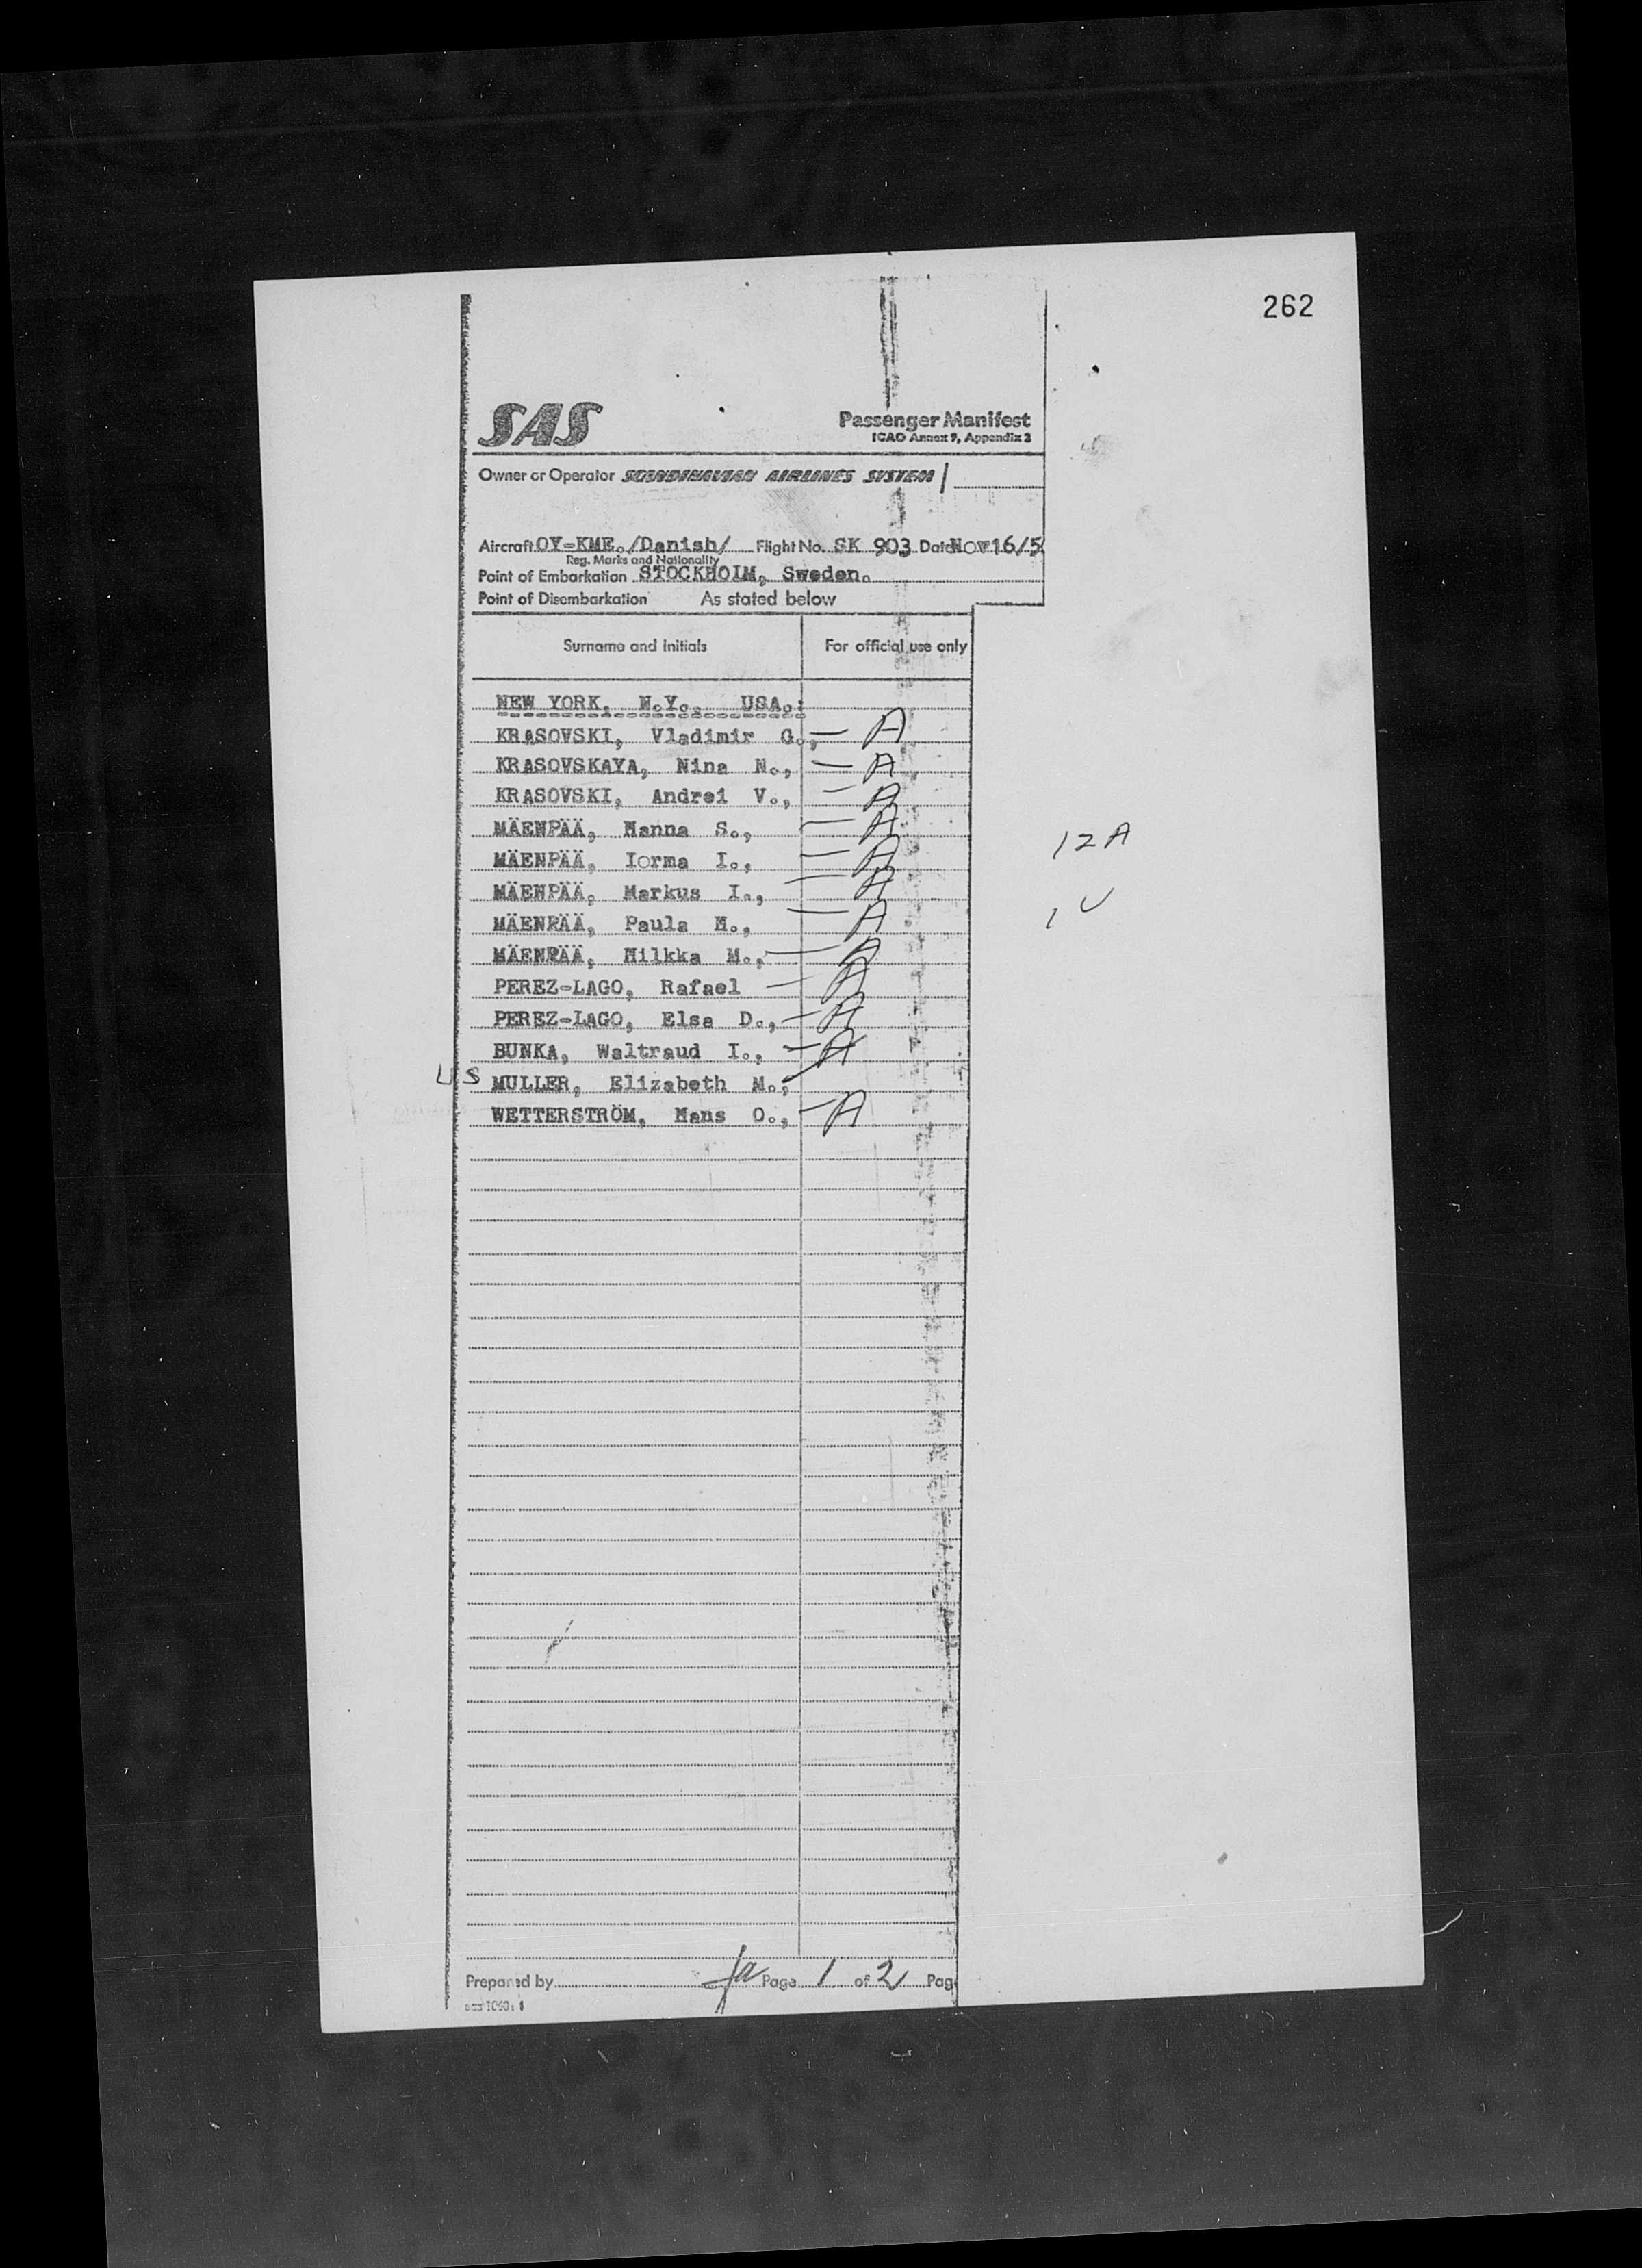 262
SAS
Passenger Manifest
ICAO Annex 9, Appendix 2
Owner or Operator SCANDINAVIAN AIRLINES SYSTEM
Aircraft OY-KME./Danish/ Flight No. SK 903 Date Nov16/5
Reg. Marks and Nationality
Point of Embarkation STOCKHOLM, Sweden.
Point of Disembarkation As stated below
Surname and Initials For official use only
NEW YORK, N.Y., USA.:
KRASOVSKI, Vladimir G., — A
KRASOVSKAYA, Nina N., — A
KRASOVSKI, Andrei V., — A
MÄENPÄÄ, Hanna S., — A
12 A
MÄENPÄÄ, Iorma I., — A
MÄENPÄÄ, Markus I., — A
1 U
MÄENPÄÄ, Paula H., — A
MÄENPÄÄ, Hilkka M., — A
PEREZ-LAGO, Rafael — A
PEREZ-LAGO, Elsa D., — A
BUNKA, Waltraud I., — A
US MULLER, Elizabeth M.,
WETTERSTRÖM, Hans O., — A
Prepared by Page 1 of 2 Pag